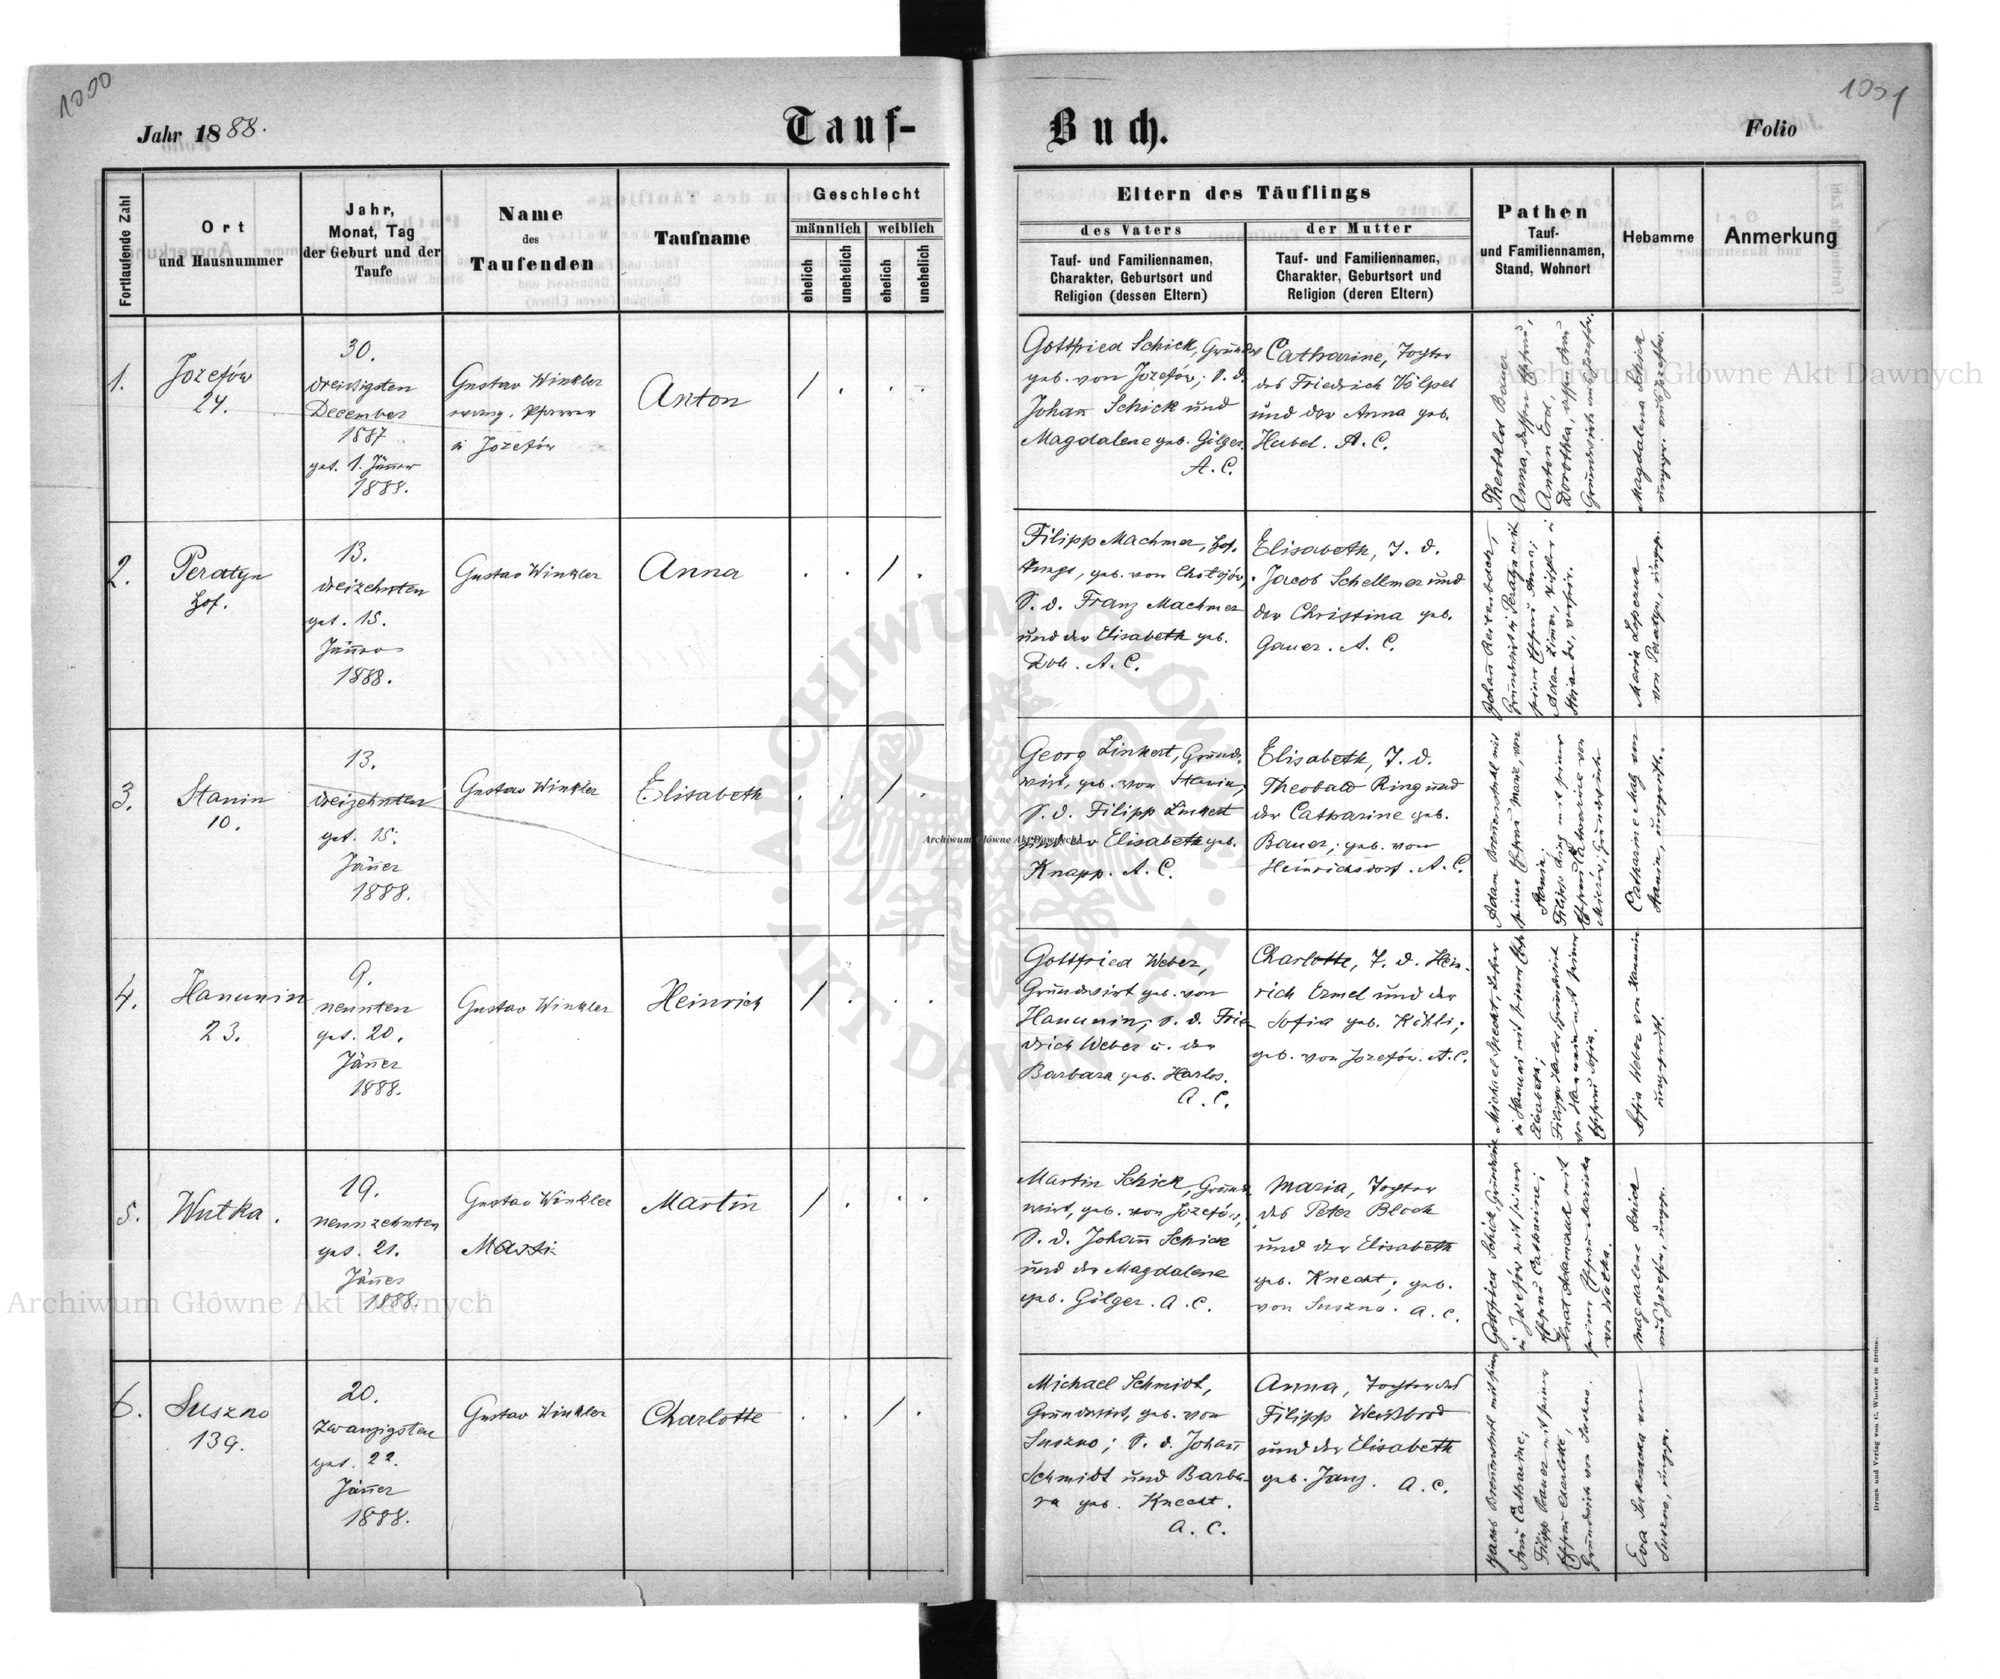 1000
Jahr 1888.
Tauf-
Fortlaufende Zahl
Ort
und Hausnummer
Jahr,
Monat, Tag
der Geburt und der
Taufe
Name
des
Taufenden
Taufname
Geschlecht
männlich
weiblich
ehelich
unehelich
ehelich
unehelich
1.
Jozefów
24.
30.
dreisigsten
December
1887
get. 1. Jänner
1888.
Gustav Winkler
evang. Pfarrer
in Jozefów
Anton
2.
Peratyn
Hof.
13.
dreizehnten
get. 15.
Jänner
1888.
Gustav Winkler
Anna
3.
Stanin
10.
13.
dreizehnten
get. 15.
Jänner
1888.
Gustav Winkler
Elisabeth
4.
Hanunin
23.
9.
neunten
get. 20.
Jänner
1888.
Gustav Winkler
Heinrich
5.
Wutka.
19.
neunzehnten
get. 21.
Jänner
1888.
Gustav Winkler
Martin
6.
Suszno
139.
20.
zwanzigsten
get. 22.
Jänner
1888.
Gustav Winkler
Charlotte
1001
Buch.
Folio
Eltern des Täuflings
des Vaters
der Mutter
Tauf- und Familiennamen,
Charakter, Geburtsort und
Religion (dessen Eltern)
Tauf- und Familiennamen,
Charakter, Geburtsort und
Religion (deren Eltern)
Pathen
Tauf-
und Familiennamen,
Stand, Wohnort
Hebamme
Anmerkung
Gottfried Schick,
geb. von Jozefów; S. d.
Johan Schick und
Magdalene geb. Gilger
A. C.
Catharine, Tochter
des Friedrich Völpel
und der Anna geb.
Hubel. A. C.
Theobald Bauer
Anna, dessen Ehefrau,
Anton Erd,
Dorothea, dessen Frau
Grundwirth aus Jozefów.
Magdalena Schick
ungepr. aus Jozefów.
Filipp Machmer,
geb. von
S. d. Franz Machmer
und der Elisabeth geb.
A. C.
Elisabeth, T. d.
Jacob Schellmer und
der Christina geb.
Gauer. A. C.
Johann Reitenbach,
Grundwirt in Peratyn mit
seiner Ehefrau Anna;
Adam
Maria
von Peratyn, ungepr.
Georg Linkert, Grund-
wirt, geb. von Stanin,
S. d. Filipp Linkert
und der Elisabeth geb.
Knapp. A. C.
Elisabeth, T. d.
Theobald Ring und
der Catharine geb.
Bauer; geb. von
Heinrichsdorf. A. C.
Adam Bronenstuhl mit
seiner Ehefrau Marie, von
Stanin;
Filipp Ring mit seiner
Ehefrau Catharine von
Grundwirte
Catharine Matz von
Stanin, ungeprüft.
Gottfried Weber,
Grundwirt geb. von
Hanunin; S. d. Frie-
drich Weber u. der
Barbara geb. Harlos.
A. C.
Charlotte, T. d. Hein-
rich Ermel und der
Sofia geb. Köhli;
geb. von Jozefów. A. C.
Michael Knecht, Lehrer
in Hanunin mit seiner
Elisabeth;
Filipp Harlos, Grundwirt
von Hanunin mit seiner
Ehefrau Sofia.
Sofia Weber von Hanunin
ungeprüft.
Martin Schick, Grund-
wirt, geb. von Jozefów,
S. d. Johann Schick
und der Magdalene
geb. Gilger. A. C.
Maria, Tochter
des Peter Block
und der Elisabeth
geb. Knecht; geb.
von Suszno. A. C.
Gottfried Schick, Grundwirt
in Jozefów mit seiner
Ehefrau Catharine;
seiner Ehefrau Maria
von Wutka.
Magdalene Schick
aus Jozefów, ungepr.
Michael Schmidt,
Grundwirt, geb. von
Suszno; S. d. Johann
Schmidt und Barba-
ra geb. Knecht.
A. C.
Anna, Tochter des
Filipp Weissbrod
und der Elisabeth
geb. Janz. A. C.
Jacob Bronenstuhl mit seiner
Frau Catharine;
Filipp Bauer mit seiner
Ehefrau Charlotte,
Grundwirth von Suszno.
Eva
Suszno, ungepr.
Druck und Verlag von C. Winiker in Brünn.
Archiwum Główne Akt Dawnych
Archiwum Główne Akt Dawnych
Archiwum Główne Akt Dawnych
ARCHIWUM GŁÓWNE AKT DAWNYCH